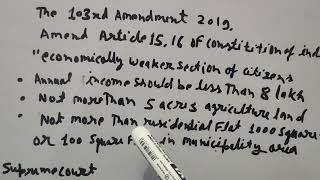 The 103rd Amendment 2019,
Amend Article 15, 16 of constitition of ind
"economically weaker section of citizens
• Annual income should be less than 8 lakh
• Not more than 5 acrs agriculture land
• Not more than residential flat 1000 square
or 100 square in municipality area
Supreme court